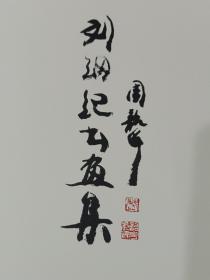 刘纲纪书画集
周韶华